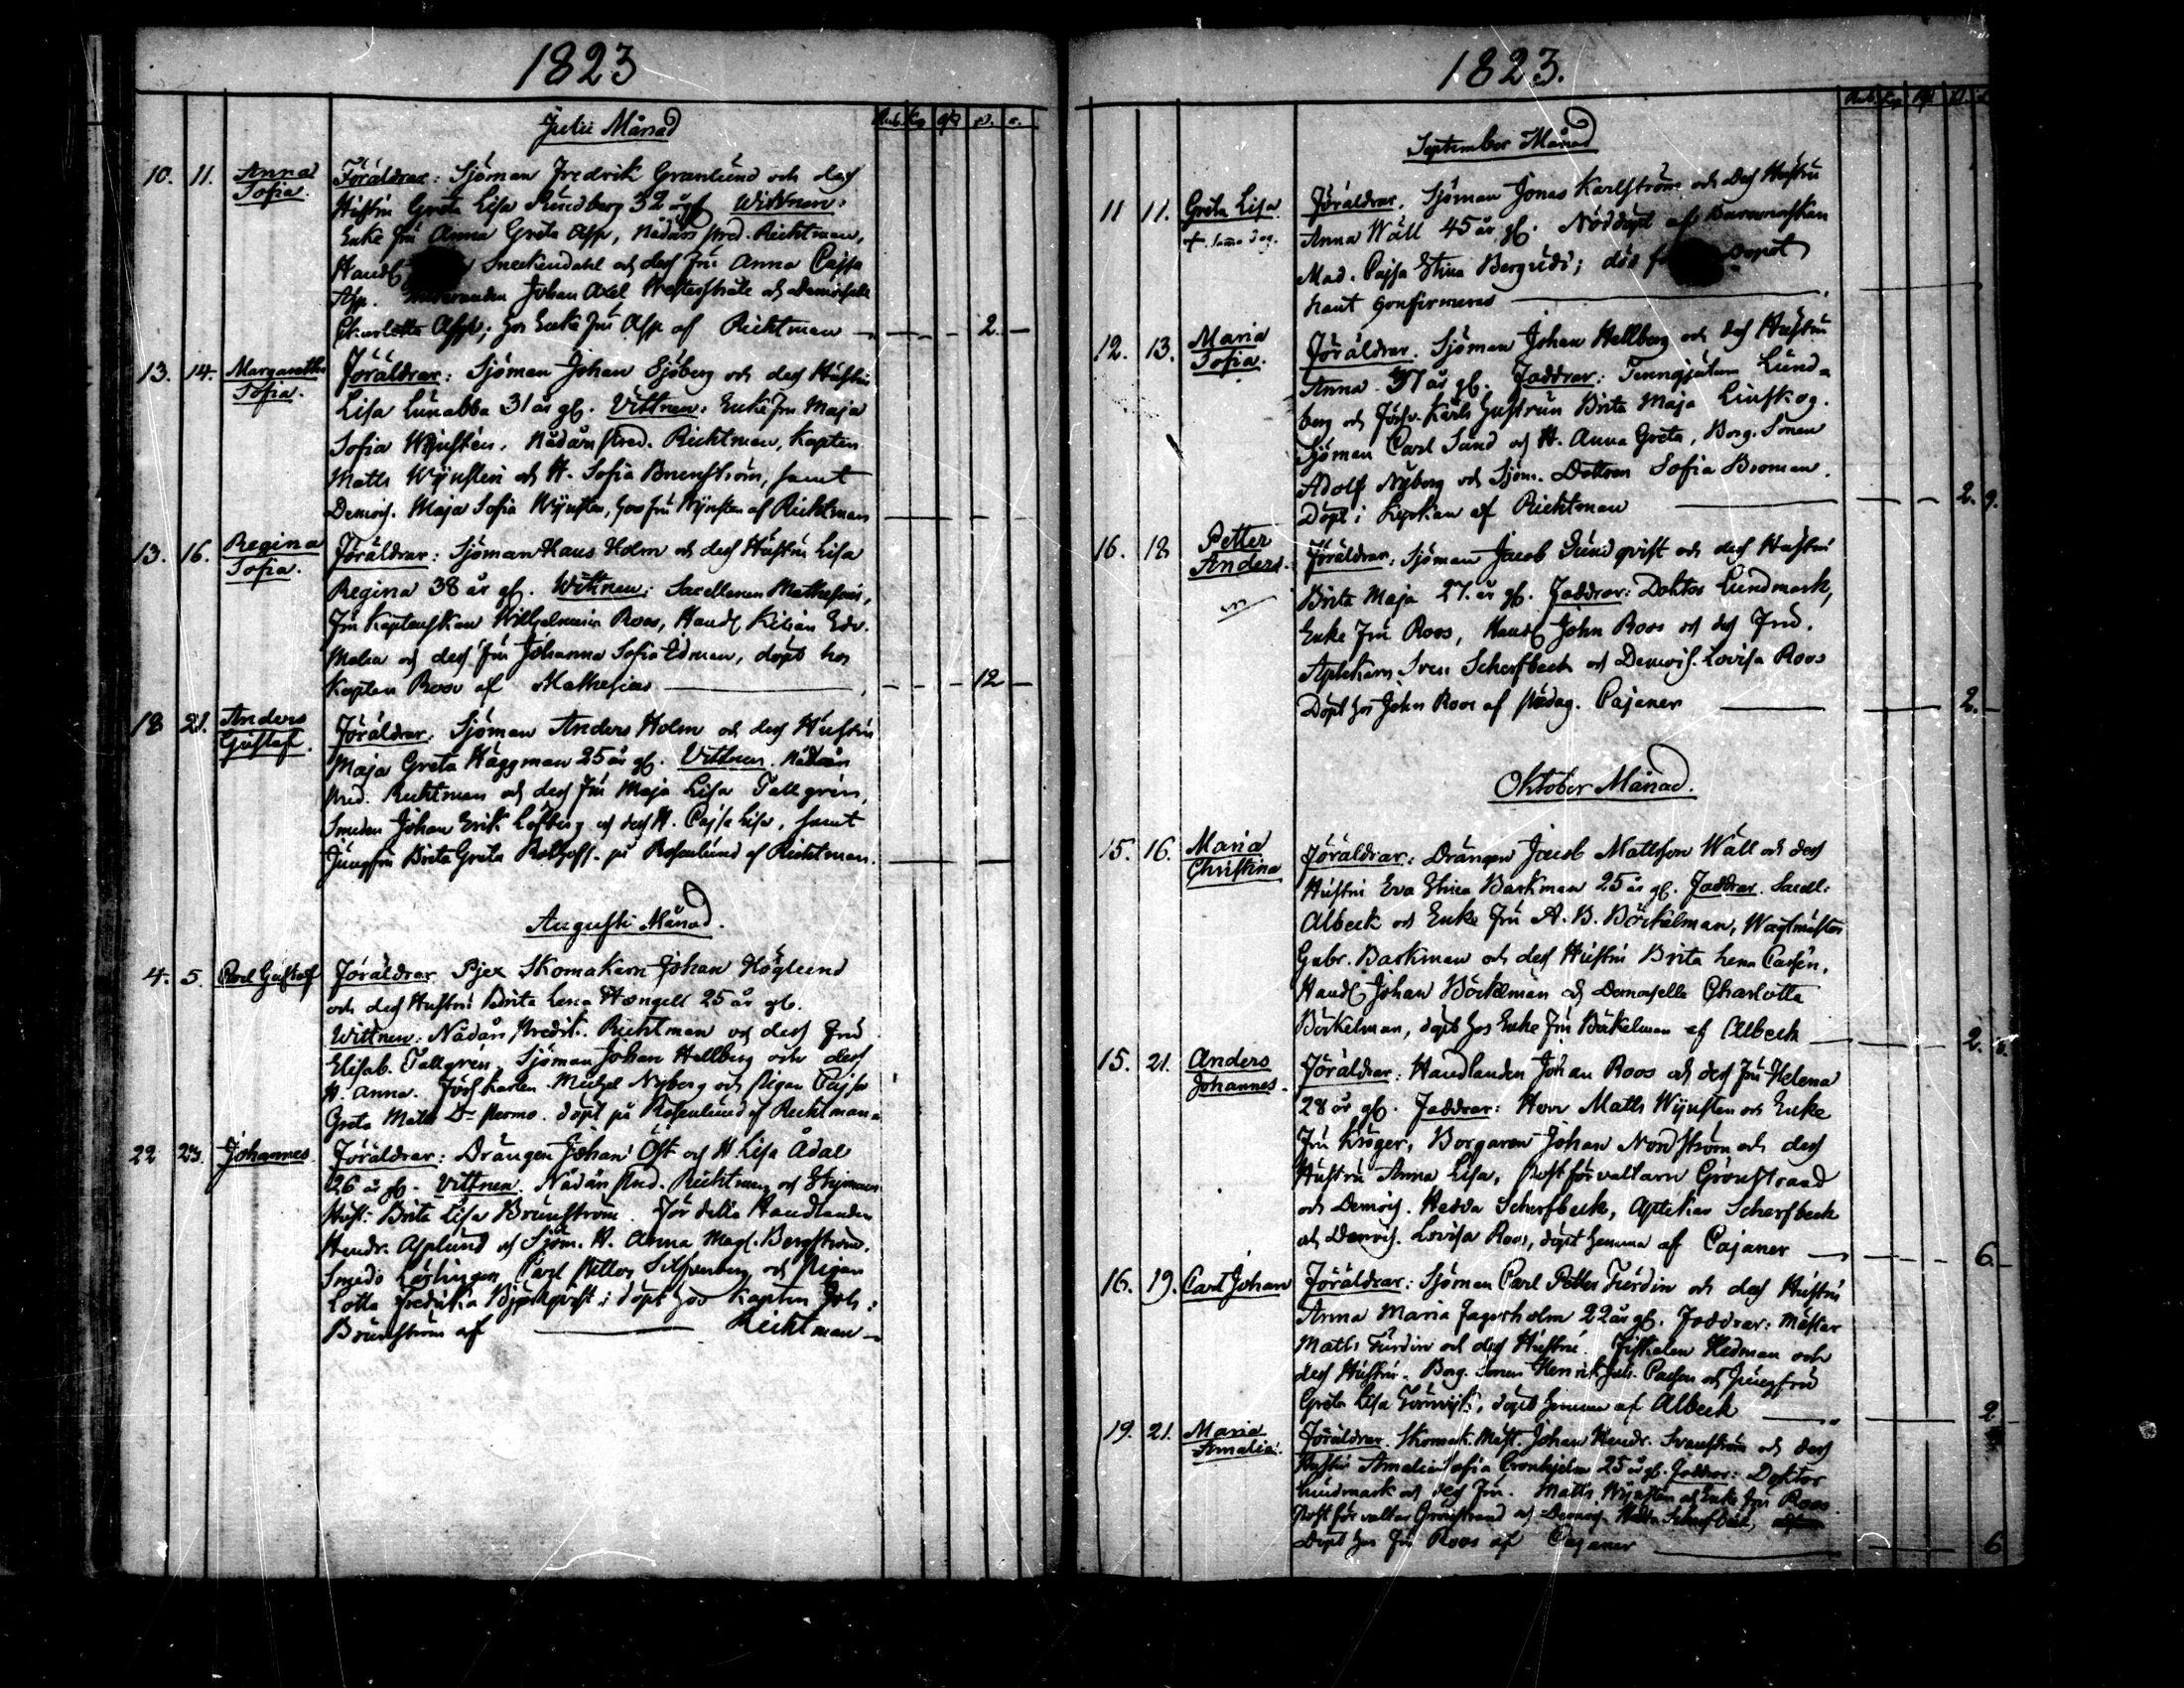 1823
Julii Månad
10. 11. Anna Sofia.
Föräldrar: Sjöman Fredrik Granlund och des
Hustru Greta Lisa Sundberg 32 år gl. Wittnen:
Enke Fru Anna Greta Asp, Nådårs pred. Richtman,
Handl Sneckendahl och des Fru Anna Cajsa
Asp. Johan Axel och Demoiselle
Charlotta Asp; hos Enke Fru Asp af Richtman — 2. —
13. 14. Margaretha Sofia.
Föräldrar: Sjöman Johan Sjöberg och des Hustru
Lisa Lunabba 31 år gl. Vittnen: Enke Fru Maja
Sofia Wijnsten, Nådårs pred. Richtman, Kapten
Matts Wijnsten och H. Sofia Brunström, samt
Demois. Maja Sofia Wijnsten, hos Fru Wijnsten af Richtman
13. 16. Regina Sofia.
Föräldrar: Sjöman Hans Holm och des Hustru Lisa
Regina 38 år gl. Wittnen: Sacellanen Mathesius,
Fru Kaptenskan Wilhelmina Roos, Handl Kilian Edv.
Malm och des Fru Johanna Sofia Edman, döpt hos
Kapten Roos af Mathesius — 12 —
18 21. Anders Gustaf.
Föräldrar: Sjöman Anders Holm och des Hustru
Maja Greta Häggman 25 år gl. Vittnen. Nådårs
pred. Richtman och des Fru Maja Lisa Tallgrén,
Smeden Johan Erik Löfberg och des H. Cajsa Lisa, samt
Jungfru Brita Greta på Rosenlund af Richtman.
Augusti Månad.
4. 5. Carl Gustaf
Föräldrar Skomakarn Johan Höglund
och des Hustru Brita Lena Hængell 25 år gl.
Wittnen: Nådårs Predik. Richtman och des Fru
Elisab. Tallgrén, Sjöman Johan Hellberg och des
H. Anna. Michel Nyberg och Pigan Cajsa
Greta Matts Dr Permo. döpt på Rosenlund af Richtman
22 23. Johannes
Föräldrar: Drängen Johan Öst och H. Lisa Ådal
26 år gl. Vittnen. Nådårs Pred. Richtman och Styrmans
Hust. Brita Lisa Brunström. Handlanden
Hendr. Asplund och Sjöm. H. Anna Mag. Bergström.
Smeds Lärlingen Carl Petter Silfverberg och Pigan
Lotta Fredrika Björkqvist; döpt hos Kapten Joh.
Brunström af — Richtman —
1823.
September Månad
11 11. Greta Lisa
† samma dag.
Föräldrar. Sjöman Jonas Karlström och des Hustru
Anna Wäll 45 år gl. Nöddöpt af Barnmorskan
Mad. Cajsa Stina Bergudd; dös dopet
hant confirmeras —
12. 13. Maria Sofia.
Föräldrar. Sjöman Johan Hellberg och des Hustru
Anna 37 år gl. Faddrar: Tenngjutaren Lund-
berg och Karls Hustrun Brita Maja
Sjöman Carl Sund och H. Anna Greta, Borg. Sonen
Adolf Nyberg och Sjöm. Dottren Sofia Broman.
Döpt i Kyrkan af Richtman — 2. 9.
16. 18 Petter Anders.
Föräldrar: Sjöman Jacob Sundqvist och des Hustru
Brita Maja 27 år gl. Faddrar: Doktor Lundmark,
Enke Fru Roos, Handl John Roos och des Fru.
Aptekarn Sven Scherfbeck och Demois. Lovisa Roos
Döpt hos John Roos af Pädag. Cajaner — 2. —
Oktober Månad.
15. 16. Maria Christina
Föräldrar: Drängen Jacob Mattsson Wäll och des
Hustru Eva Stina Barkman 25 år gl. Faddrar. Sacell:
Albeck och Enke Fru A. B. Böckelman, Wagtmästar
Gabr. Barkman och des Hustru Brita Lena Carlén,
Handl Johan Böckelman och Demoiselle Charlotta
Böckelman, döpt hos Enke Fru Böckelman af Albeck — 2.
15. 21. Anders Johannes.
Föräldrar: Handlanden Johan Roos och des Fru Helena
28 år gl. Faddrar: Herr Matts Wijnsten och Enke
Fru Kröger, Borgaren Johan Nordström och des
Hustru Anna Lisa, Postförvaltarn Grönstrand
och Demois. Hedda Scherfbeck, Aptekar Scherfbeck
och Demois. Lovisa Roos, döpt hemma af Cajaner — 6. —
16. 19. Carl Johan
Föräldrar: Sjöman Carl Petter Furdin och des Hustru
Anna Maria Fagerholm 22 år gl. Faddrar: Mästar
Matts Furdin och des Hustru. Fiskalen Hedman och
des Hustru. Borg. sonen Henrik Joh. och Jungfru
Greta Lisa, döpt hemma af Albeck — 2
19. 21. Maria Amalia.
Föräldrar. Skomak. Mäst. Johan Hendr. Svanström och des
Hustru Amalia Sofia Cronhjelm 25 år gl. Faddrar: Doktor
Lundmark och des Fru. Matts Wijnsten och Enke Fru Roos
Postförvaltar Grönstrand och Demois. Hedda Scherfbeck,
Döpt hos Fru Roos af Cajaner — 6